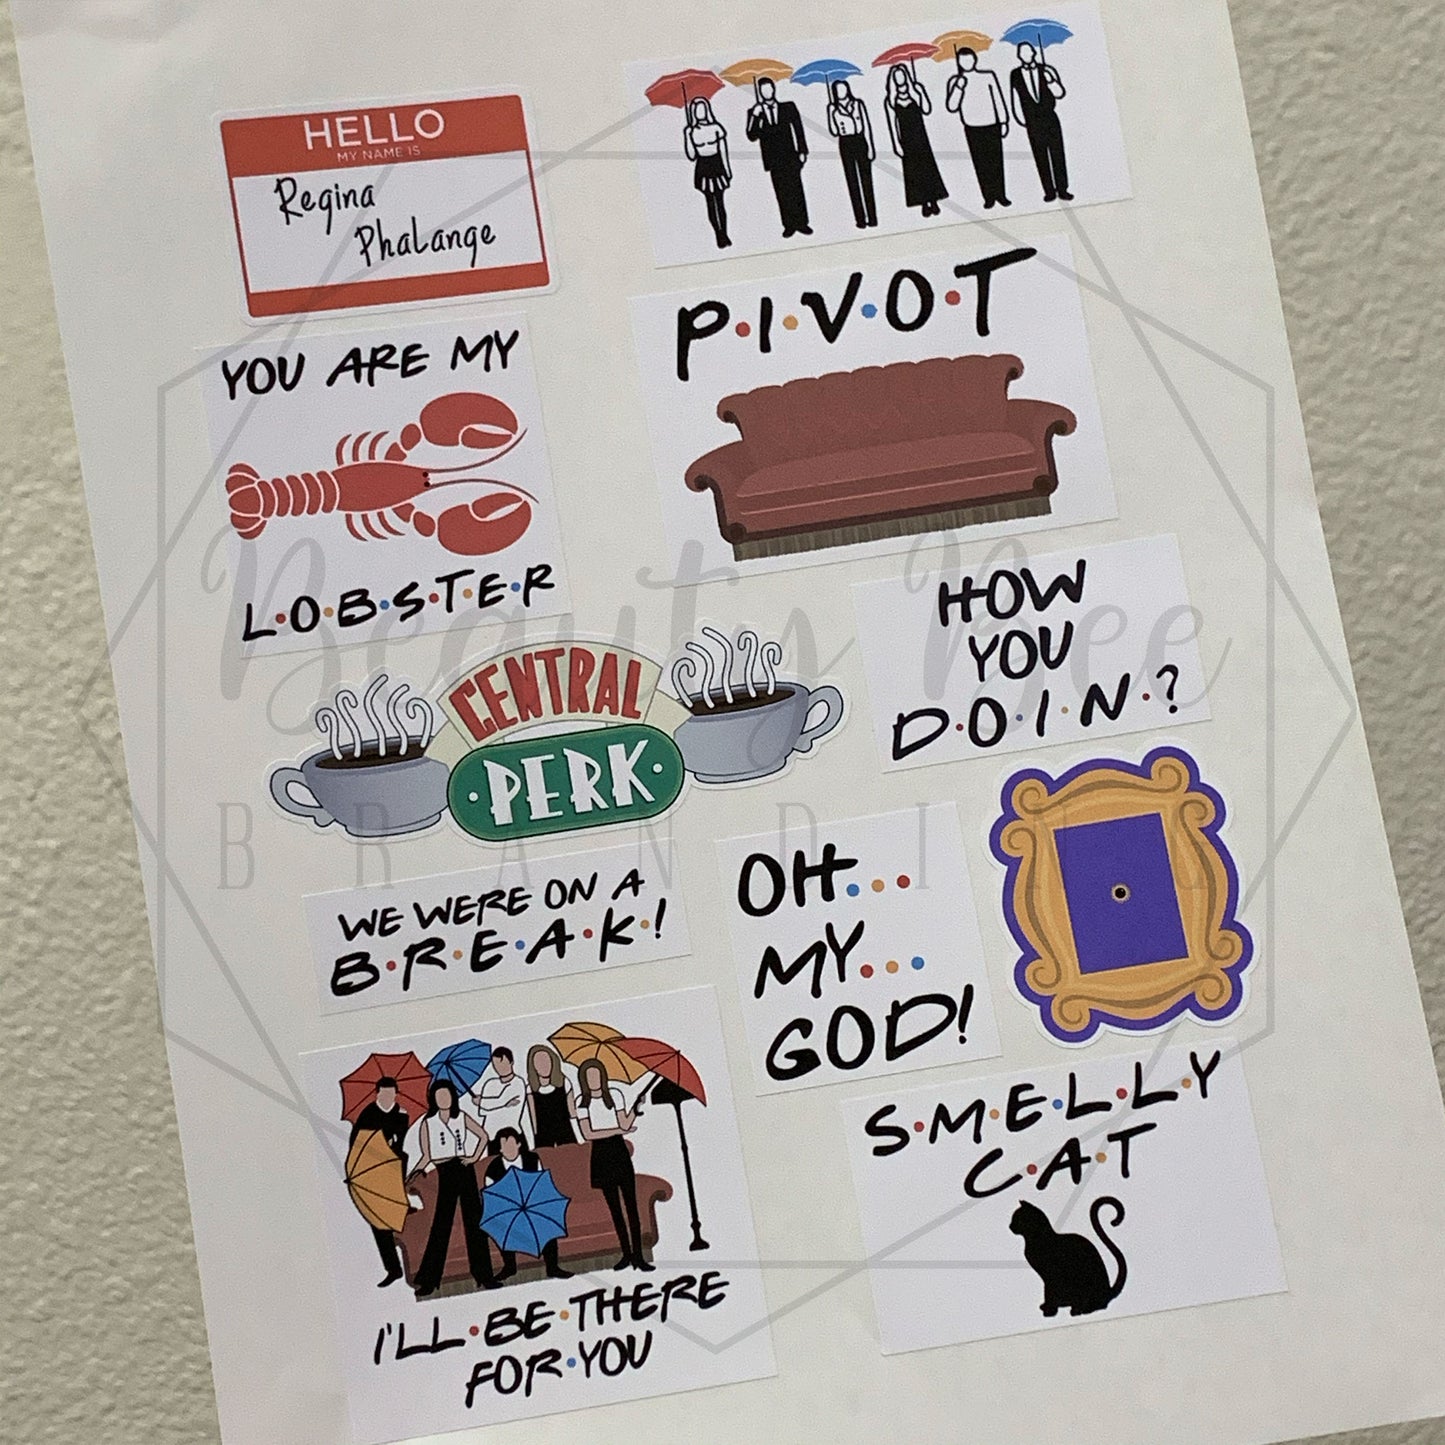 HELLO
MY NAME IS
Regina
Phalange
P•I•V•O•T
YOU ARE MY
L•O•B•S•T•E•R
HOW
YOU
D•O•I•N•?
CENTRAL
•PERK•
WE WERE ON A
B•R•E•A•K•!
OH...
MY...
GOD!
S•M•E•L•L•Y
C•A•T
I'LL•BE•THERE
FOR•YOU
Beauty Bee
BRANDING